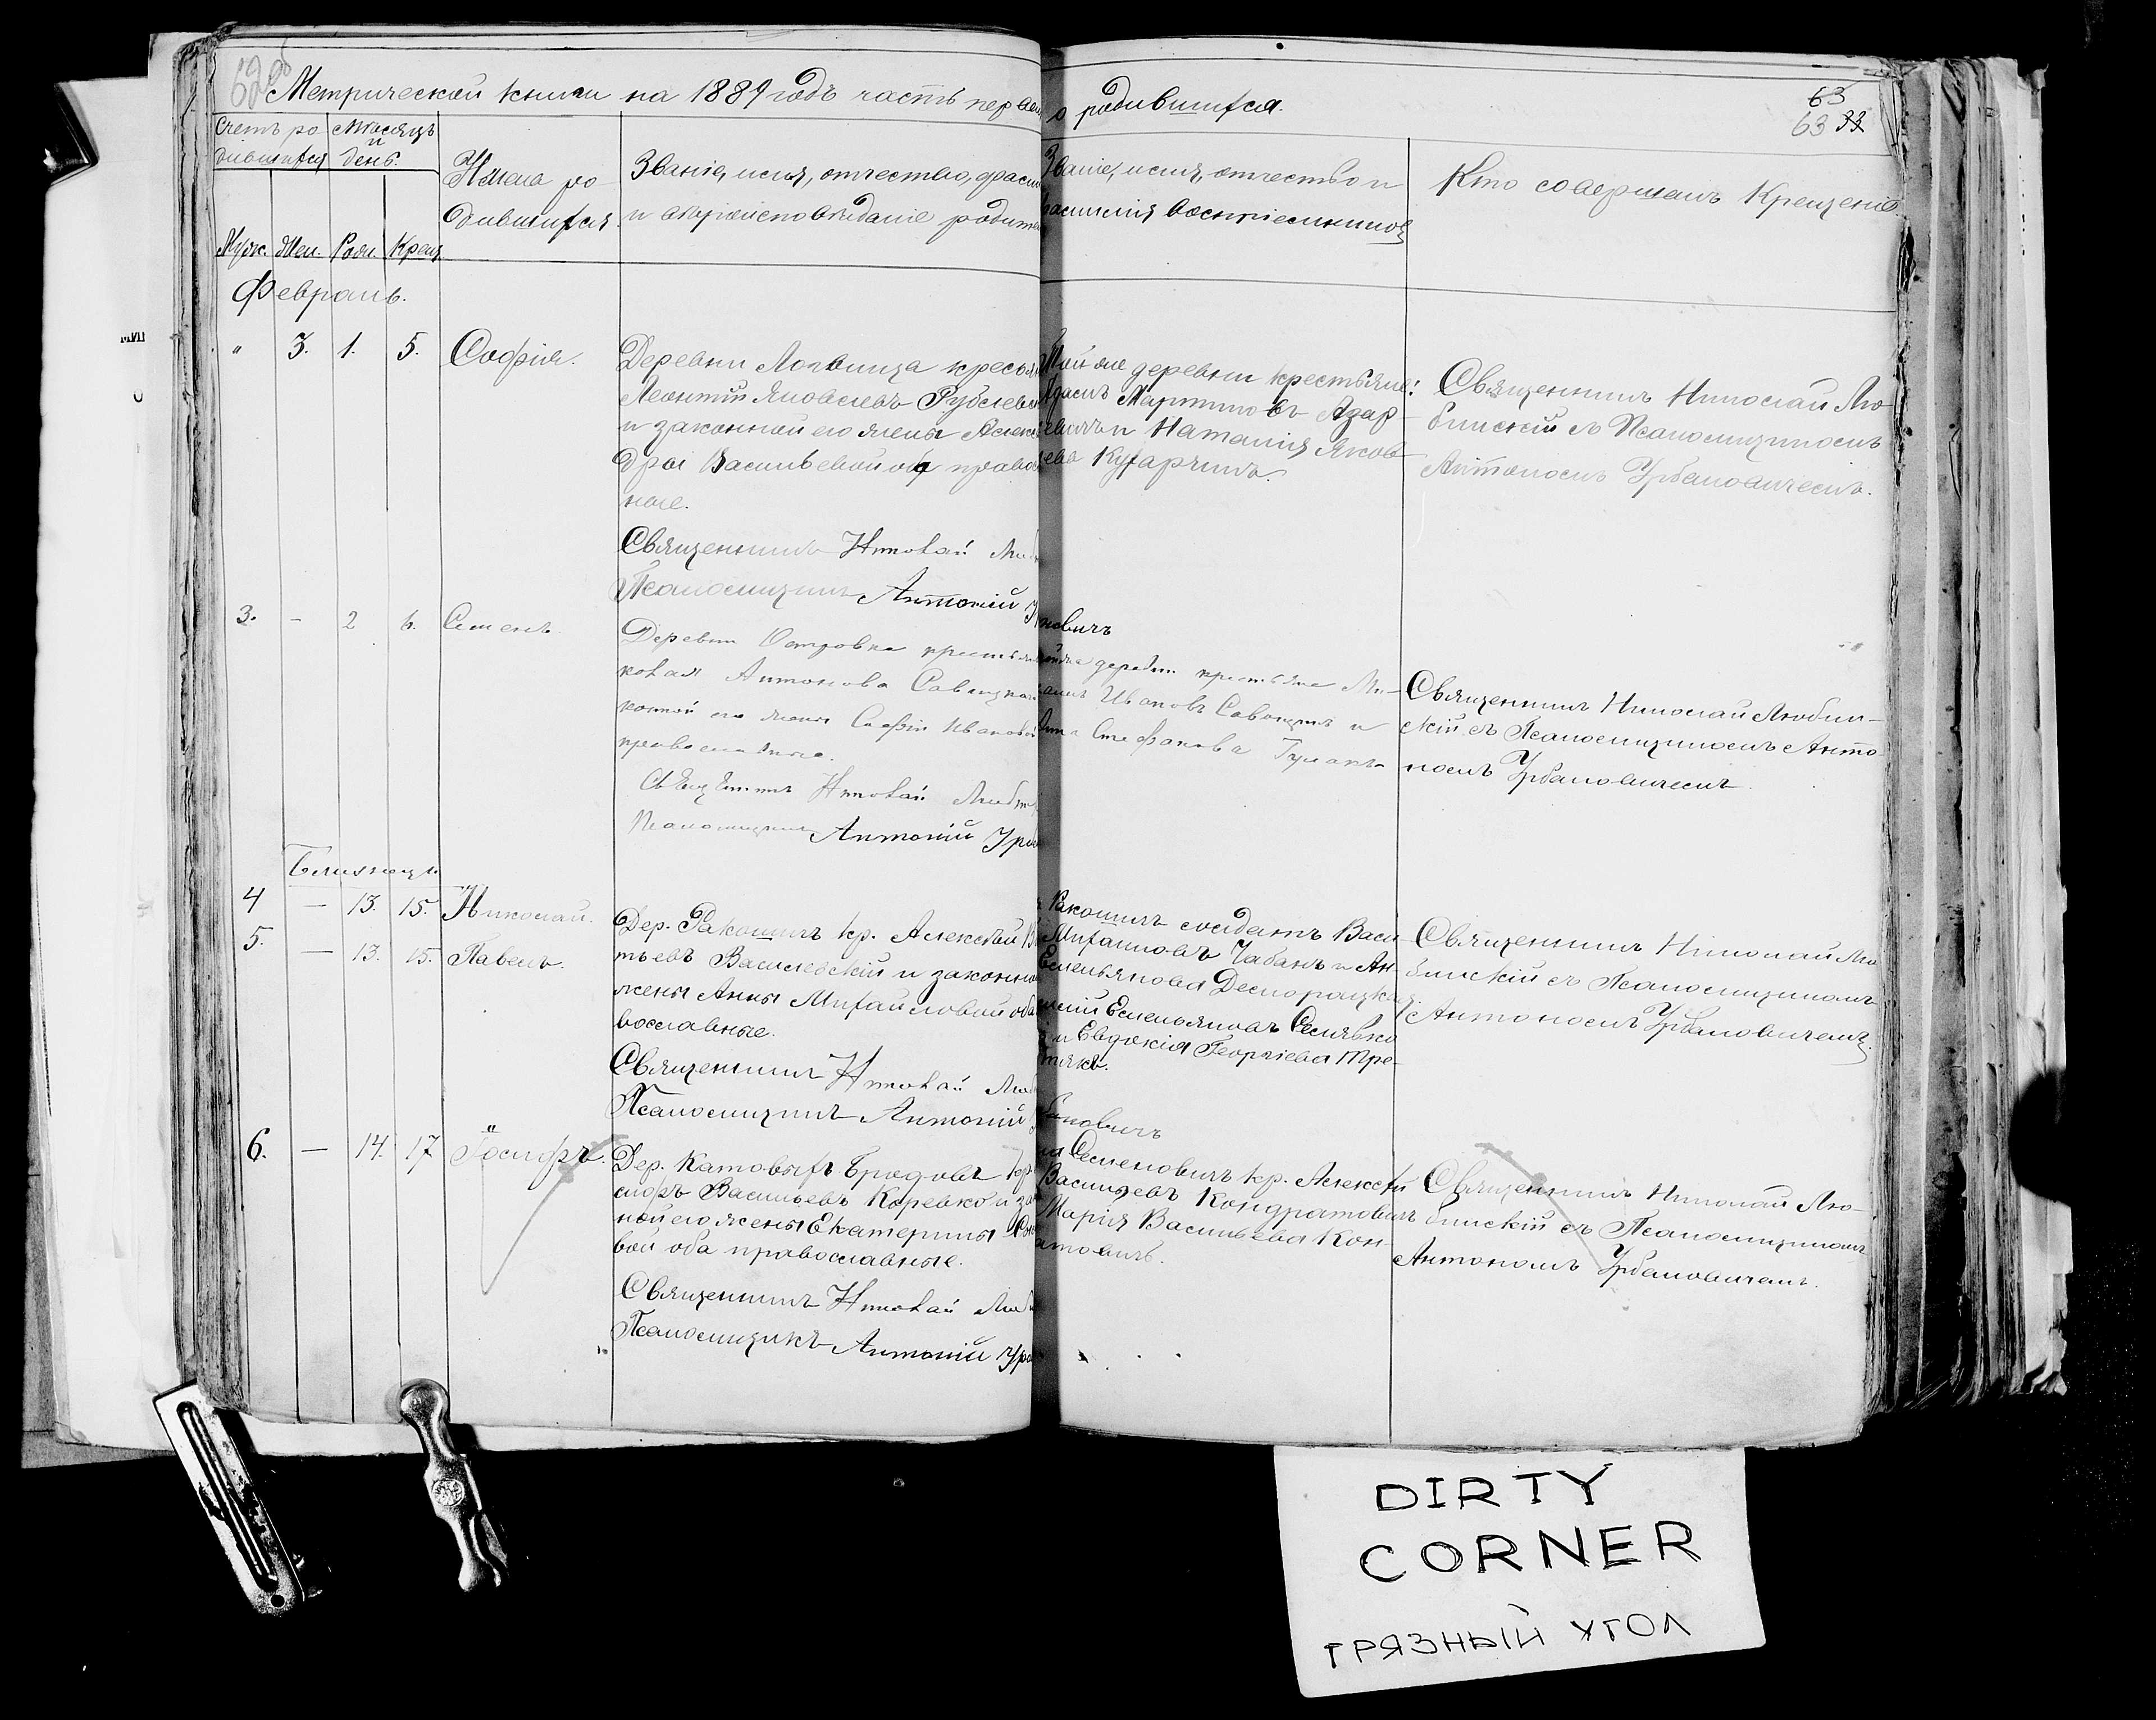 Метрической книги на 1889 годъ часть первая
о родившихся.
63
63 33
Счетъ ро-
дившихся
Мѣсяцъ
и
день.
Муж.
Жен.
Рожд.
Крещ.
Имена ро-
дившихся.
Званіе, имя, отчество, фами
и вѣроисповѣданіе родите
Званіе, имя, отчество и
фамилія воспріемниковъ
Кто совершалъ Крещеніе.
Февраль.
" 3. 1. 5. Софія.
Деревни Логвища кресть
Леонтій Яковлевъ
и законной его жены Алекса
дры Васильевой оба право
ные.
Священникъ Николай Люб
Псаломщикъ Антоній У
Той же деревни крестьяне:
Мартиновъ Азар
евичъ и Наталія Яков
ева Кухарчикъ.
Священникъ Николай Лю-
бинскій съ Псаломщикомъ
Антономъ Урбановичемъ.
3. - 2 6. Семенъ.
Деревни Островка крестья
колая Антонова Савицка
конной его жены Софіи Ивановой
православные.
Священникъ Николай Люби
Псаломщикъ Антоній Урба
новичъ
деревни крестьяне Ми-
Ивановъ Савицкій и
Анна Стефанова
Священникъ Николай Любин-
скій съ Псаломщикомъ Анто
номъ Урбановичемъ.
Близнецы
4 — 13. 15. Николай.
5. — 13. 15. Павелъ.
Дер. Ракошичъ кр. Алексѣй
тьевъ Василевскій и законной
жены Анны Михайловой оба
вославные.
Священникъ Николай Люб
Псаломщикъ Антоній
Ракошичъ солдатъ Васи
Михайловъ Чабанъ и Ан-
Емельянова
Емельяновъ Селявко
и Евдокія Георгіева Тре-
тякъ.
бановичъ
Священникъ Николай Лю
бинскій съ Псаломщикомъ
Антономъ Урбановичемъ.
6. — 14. 17 Іосифъ.
Дер. Катовыхъ Бродовъ кр.
сифъ Васильевъ Коревко и зак
ной его жены Екатерины
вой оба православные.
Священникъ Николай Люб
Псаломщикъ Антоній Урба
Семеновичъ кр. Алексѣй
Васильевъ Кондратовичъ
Марія Васильева Кон-
атовичъ.
Священникъ Николай Лю-
бинскій съ Псаломщикомъ
Антономъ Урбановичемъ.
DIRTY
CORNER
ГРЯЗНЫЙ УГОЛ